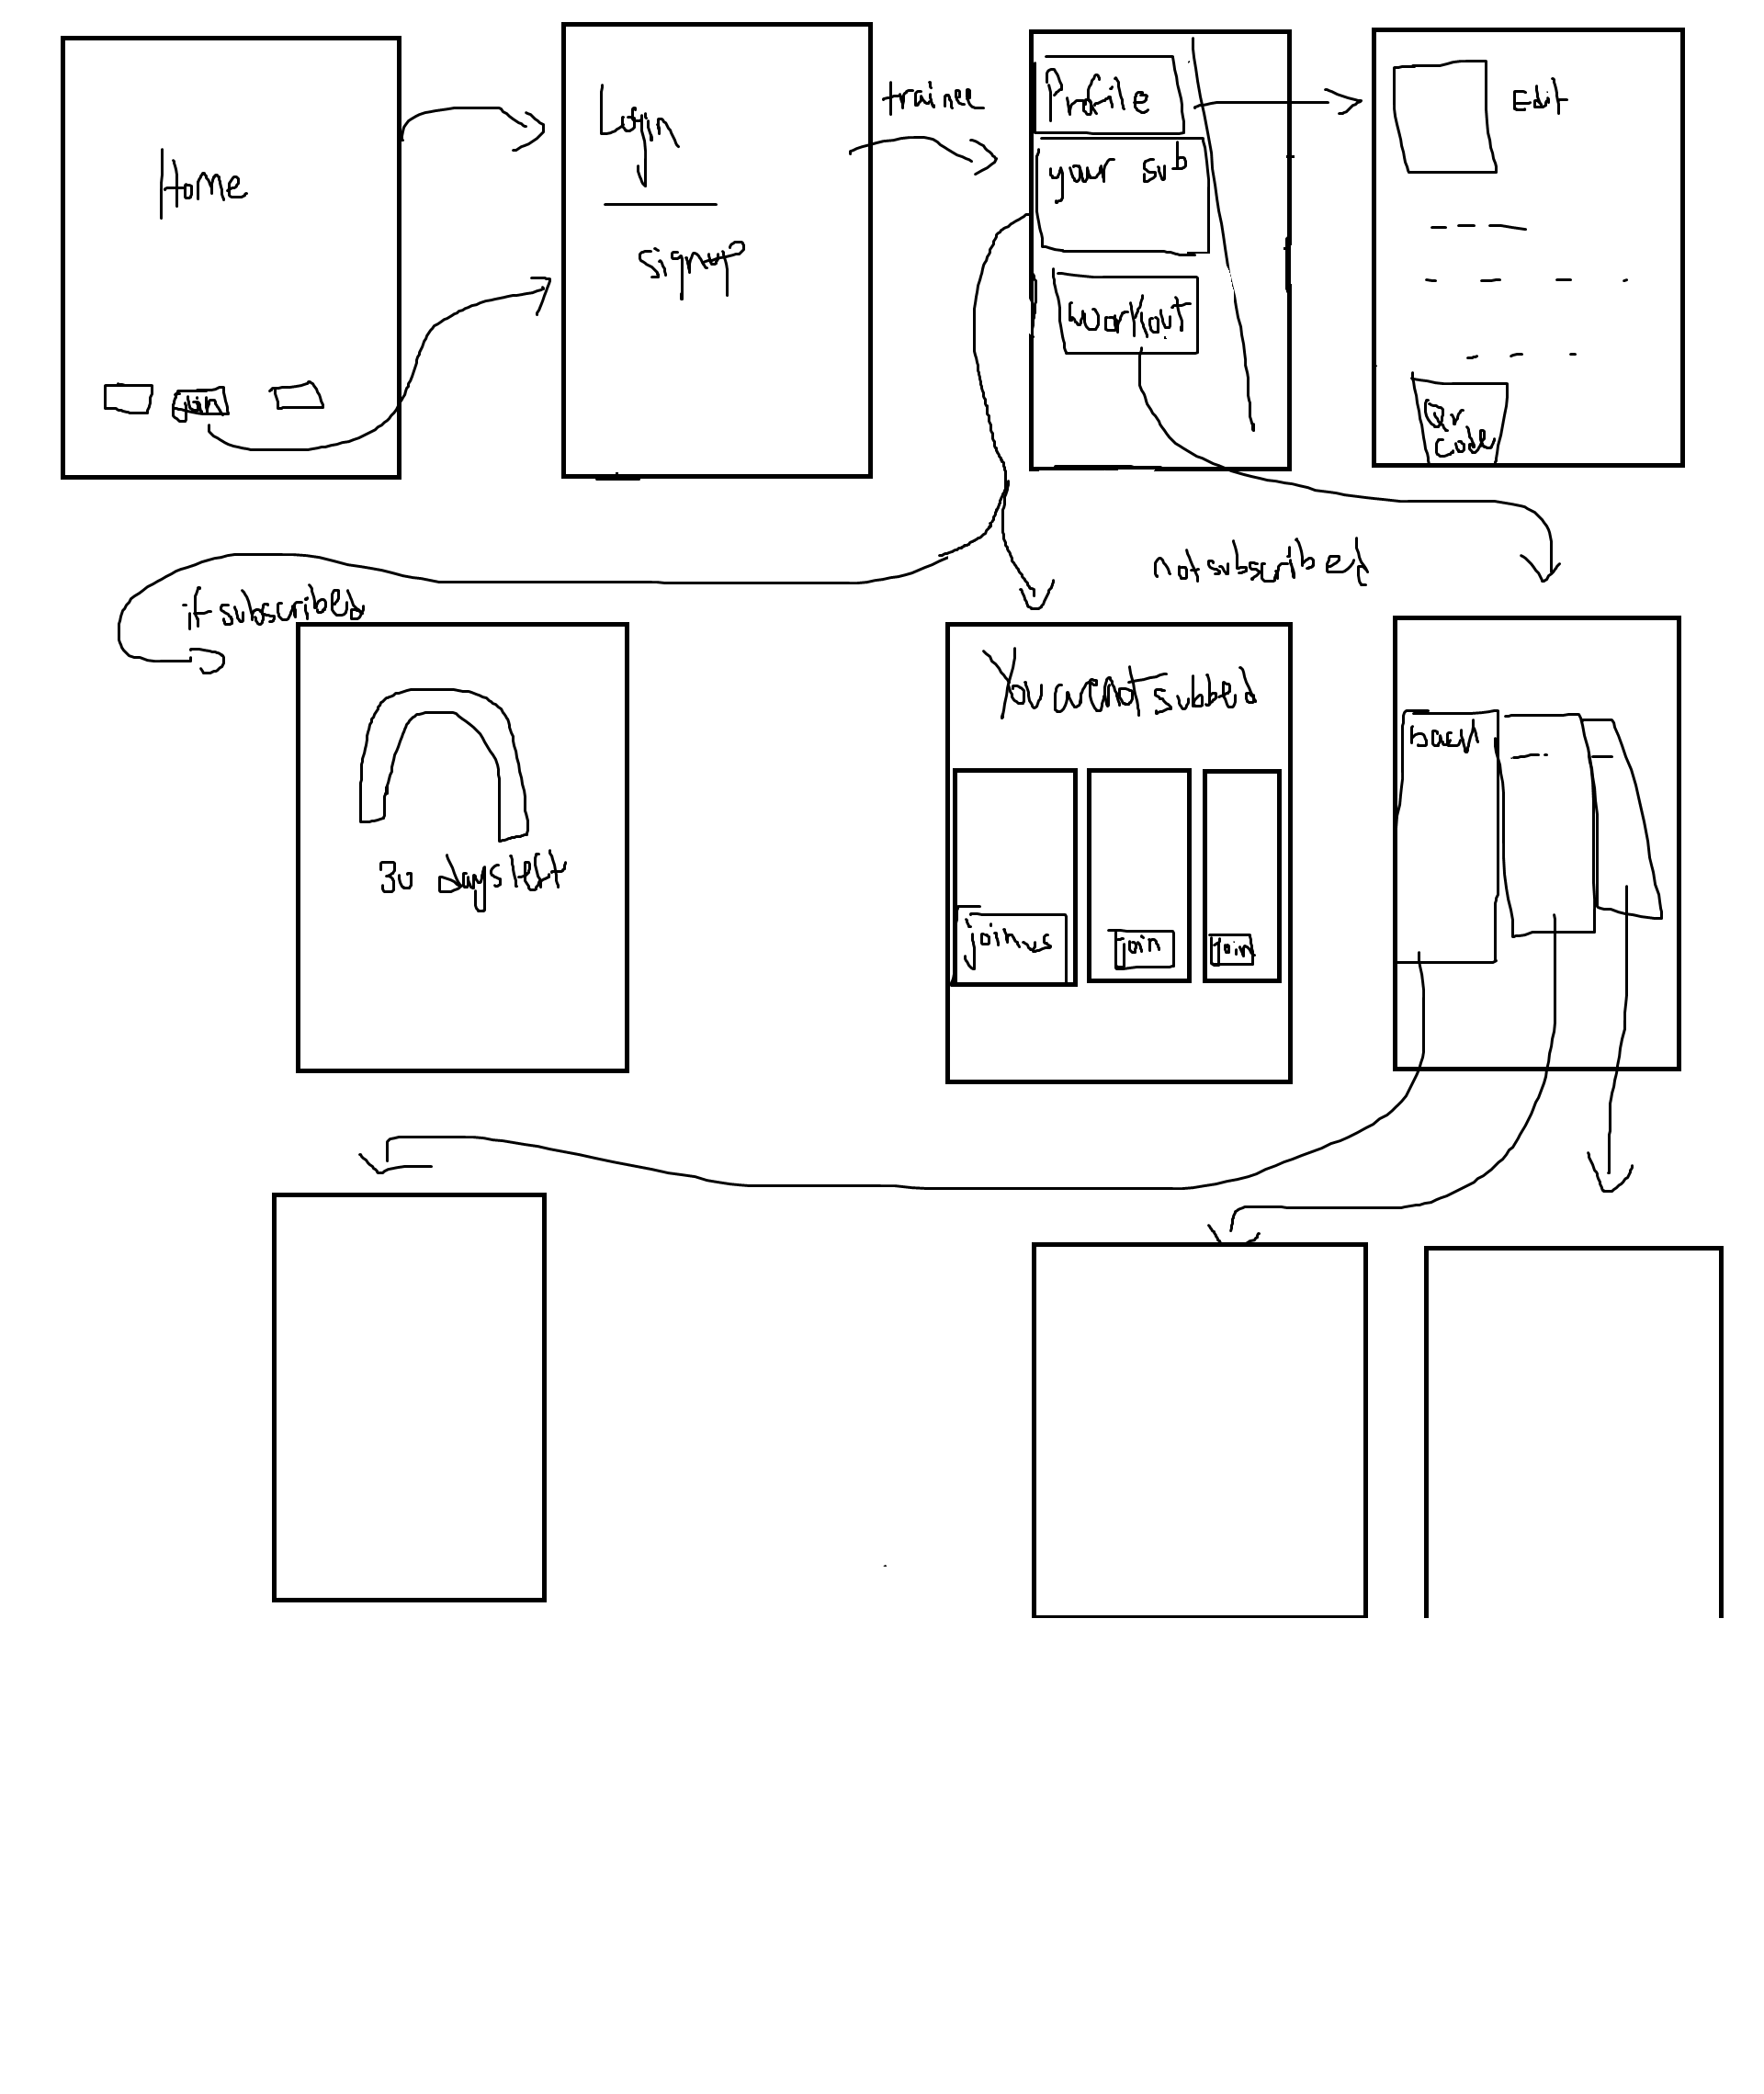 Home
join
Login
signup
trainee
Profile
your sub
workout
Edit
Qr
code
if subscribed
not subscribed
30 days left
You are not subbed
join us
join
join
back